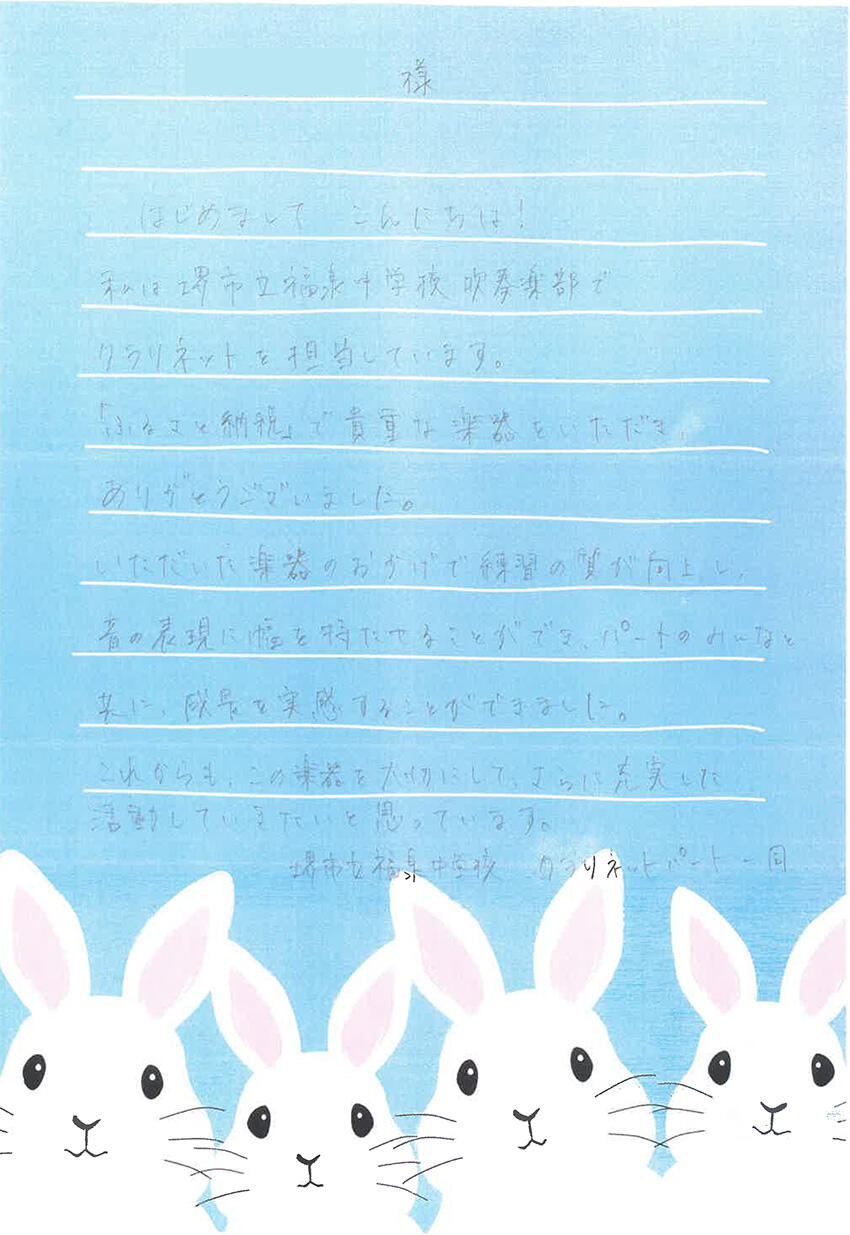 様
はじめまして こんにちは！
私は堺市立福泉中学校吹奏楽部で
クラリネットを担当しています。
「ふるさと納税」で貴重な楽器をいただき、
ありがとうございました。
いただいた楽器のおかげで練習の質が向上し、
音の表現に幅を持たせることができ、パートのみんなと
共に、成長を実感することができました。
これからも、この楽器を大切にして、さらに充実した
活動していきたいと思っています。
堺市立福泉中学校 クラリネットパート一同